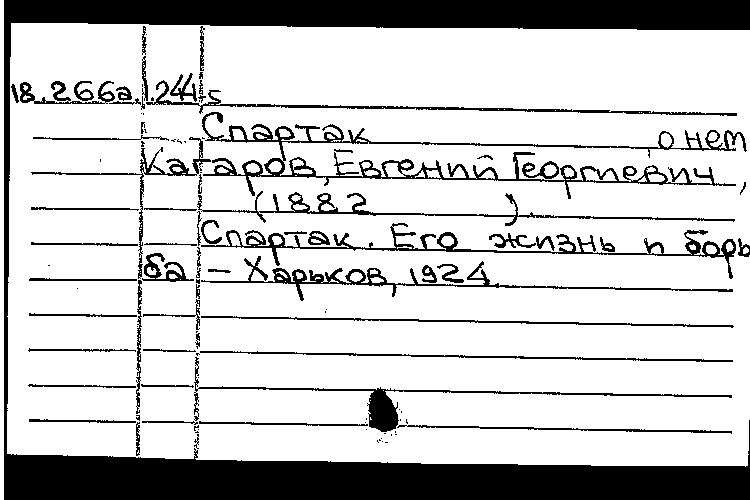 18.266а.1.244-5
Спартак о нем
Кагаров, Евгений Георгиевич,
(1882 ).
Спартак. Его жизнь и борь
ба – Харьков, 1924.